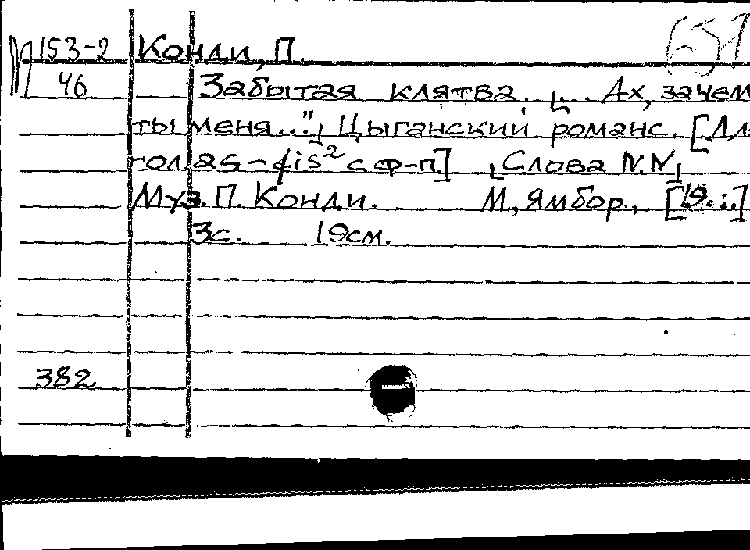 М153-2 Конди, П.
46 Забытая клятва. „... Ах, зачем
ты меня..." Цыганский романс. [Для
гол. as-fis² с ф-п.] [Слова N.N]
Муз. П. Конди. М, Ямбор., [19..]
3с. 19см.
382